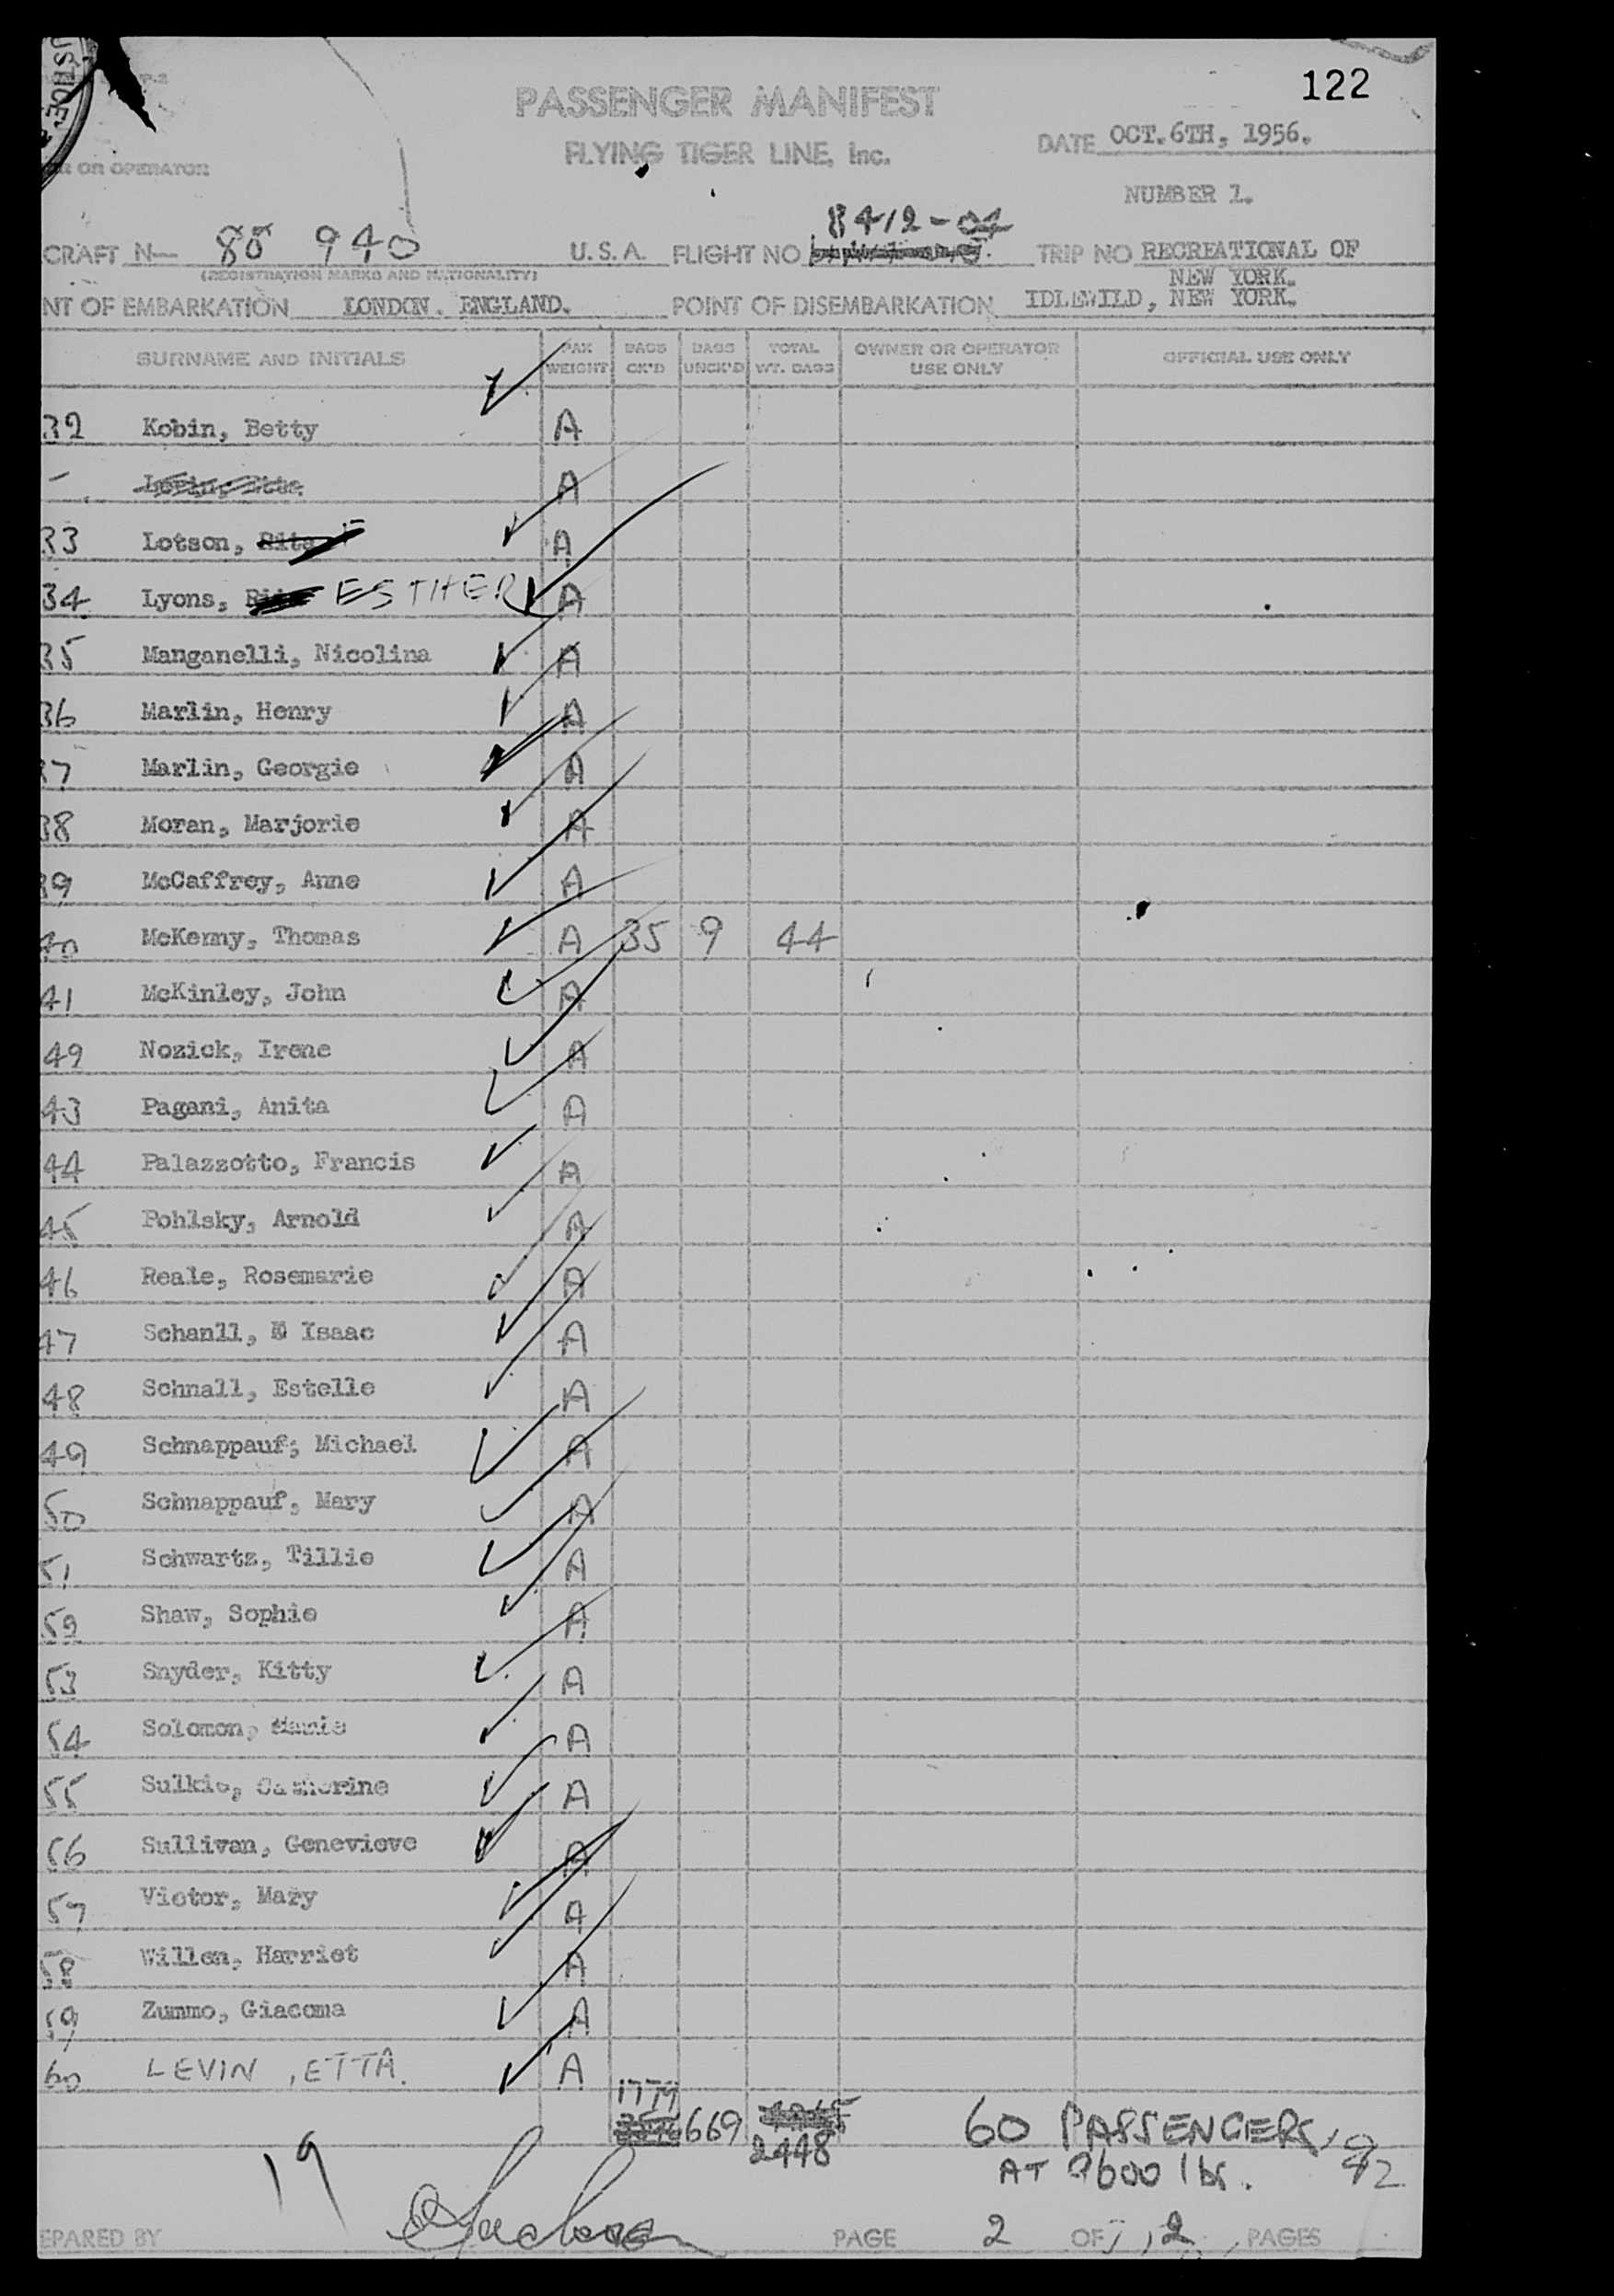 122
USTICE
PASSENGER MANIFEST
FLYING TIGER LINE, Inc.
DATE OCT. 6TH, 1956.
OR OPERATOR
NUMBER 1.
8412-04
CRAFT N— 85 940 U.S.A. FLIGHT NO TRIP NO RECREATIONAL OF
(REGISTRATION MARKS AND NATIONALITY) NEW YORK.
NT OF EMBARKATION LONDON. ENGLAND. POINT OF DISEMBARKATION IDLEWILD, NEW YORK.
SURNAME AND INITIALS PAX WEIGHT BAGS CK'D BAGS UNCK'D TOTAL WT. BAGS OWNER OR OPERATOR USE ONLY OFFICIAL USE ONLY
32 Kobin, Betty A
- Levin, Etta A
33 Lotson, Rita A
34 Lyons, ESTHER A
35 Manganelli, Nicolina A
36 Marlin, Henry A
37 Marlin, Georgie A
38 Moran, Marjorie A
39 McCaffrey, Anne A
40 McKenny, Thomas A 35 9 44
41 McKinley, John A
42 Nozick, Irene A
43 Pagani, Anita A
44 Palazzotto, Francis A
45 Pohlsky, Arnold A
46 Reale, Rosemarie A
47 Schanll, Isaac A
48 Schnall, Estelle A
49 Schnappauf, Michael A
50 Schnappauf, Mary A
51 Schwartz, Tillie A
52 Shaw, Sophie A
53 Snyder, Kitty A
54 Solomon, A
55 Sulkie, Catherine A
56 Sullivan, Genevieve A
57 Victor, Mary A
58 Willen, Harriet A
59 Zummo, Giacoma A
60 LEVIN, ETTA. A
1779
669
2448
60 PASSENGERS,
AT 9600 lbs.
19
EPARED BY PAGE 2 OF 2 PAGES